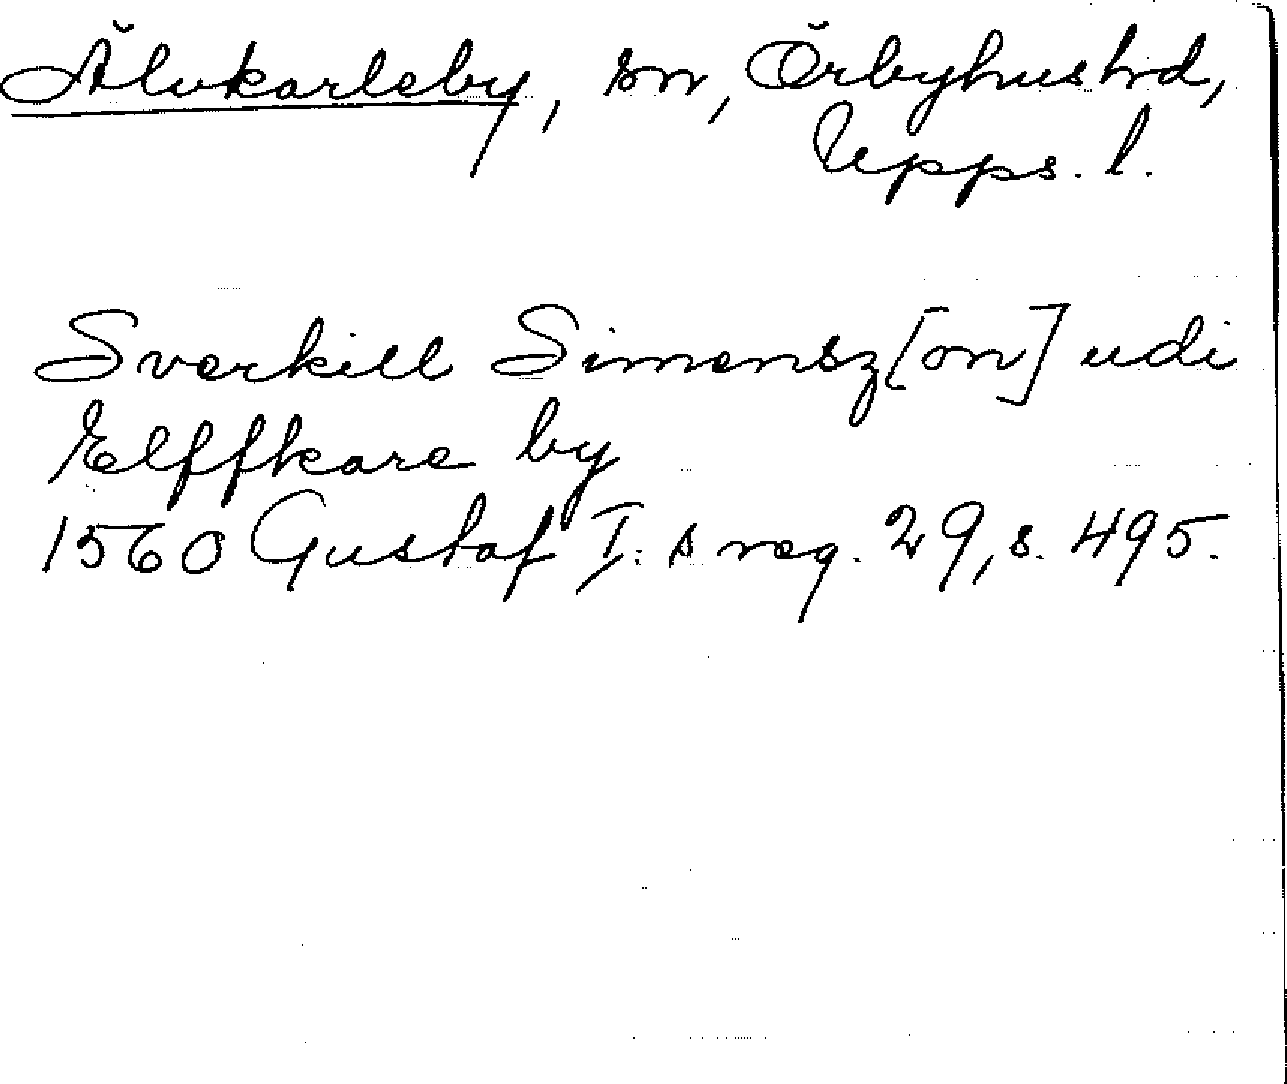 Älvkarleby, sn, Örbyhus hd,
Upps. l.
Sverkill Simensz[on] udi
Elffkare by
1560 Gustaf I:s reg. 29, s. 495.